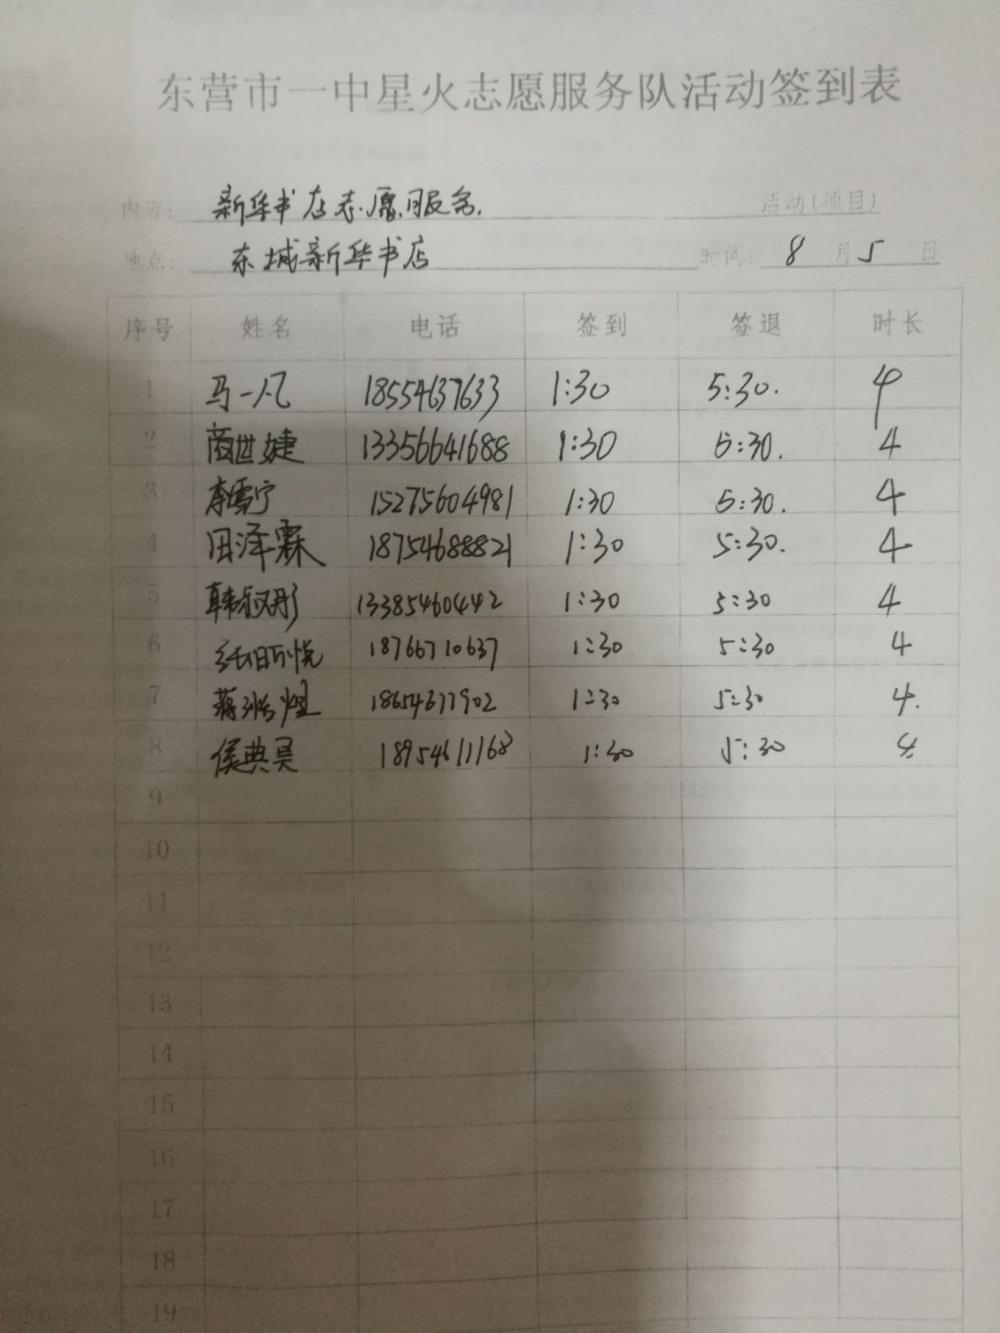 东营市一中星火志愿服务队活动签到表
内容: 新华书店志愿服务. 活动(项目)
地点: 东城新华书店 时间: 8 月 5 日
序号 姓名 电话 签到 签退 时长
1 马一凡 18554637633 1:30 5:30. 4
2 商世婕 13356641688 1:30 5:30. 4
3 李雪宁 15275604981 1:30 5:30. 4
4 田泽霖 18754688821 1:30 5:30. 4
5 韩叔彤 13385460442 1:30 5:30 4
6 18766710637 1:30 5:30 4
7 蒋 18654677902 1:30 5:30 4.
8 侯典昊 18954611168 1:30 5:30 4
9
10
11
12
13
14
15
16
17
18
19